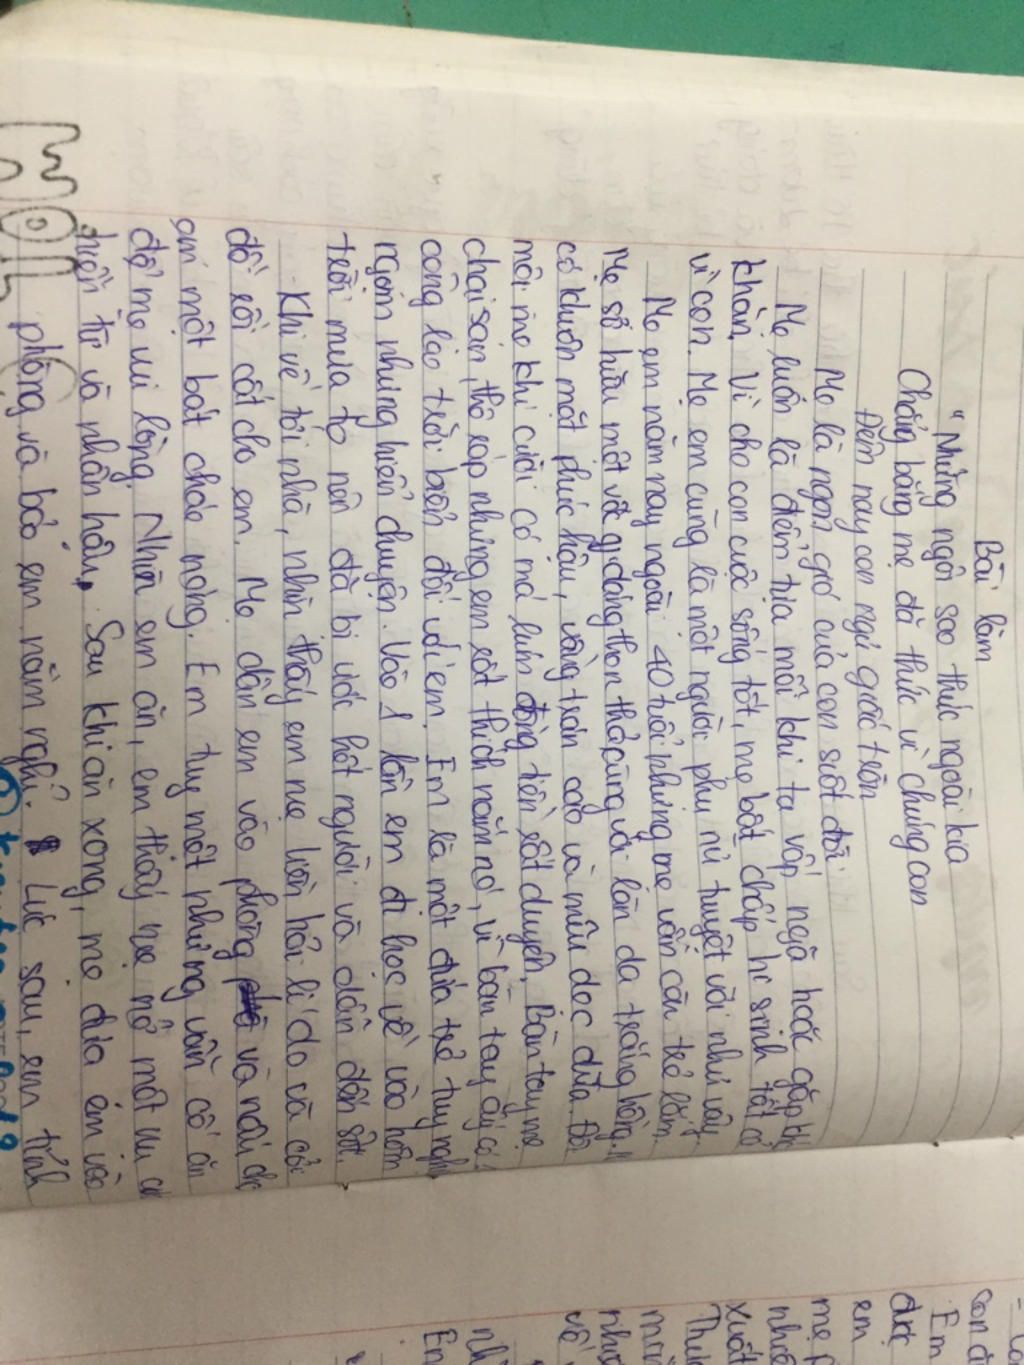 Bài làm
"Những ngôi sao thức ngoài kia
Chẳng bằng mẹ đã thức vì chúng con
Đêm nay con ngủ giấc tròn
Mẹ là ngọn gió của con suốt đời.
Mẹ luôn là điểm tựa mỗi khi ta vấp ngã hoặc gặp
khăn. Vì cho con cuộc sống tốt, mẹ bất chấp hi sinh tất cả
vì con. Mẹ em cũng là một người phụ nữ tuyệt vời như vậy
Mẹ em năm nay ngoài 40 tuổi nhưng mẹ vẫn còn trẻ lắm.
Mẹ sở hữu một vóc dáng thon thả cùng với làn da trắng hồng.
có khuôn mặt phúc hậu, vầng trán cao và mũi dọc dừa. Đôi
môi mẹ khi cười có má lúm đồng tiền rất duyên. Bàn tay mẹ
chai sạn, thô ráp nhưng em rất thích nắm nó, vì bàn tay ấy có
công lao trời biển đối với em. Em là một đứa trẻ tuy nghịch
ngợm nhưng hiểu chuyện. Vào 1 lần em đi học về vào hôm
trời mưa to nên đã bị ướt hết người và dẫn đến sốt.
Khi về tới nhà, nhìn thấy em mẹ liền hỏi lí do và
đồ rồi cất cho em. Mẹ dẫn em vào phòng và nấu cho
em một bát cháo nóng. Em tuy mệt nhưng vẫn cố ăn
để mẹ vui lòng. Nhìn em ăn, em thấy mẹ nở một nụ cười
hiền từ và nhân hậu. Sau khi ăn xong, mẹ đưa em vào
phòng và bảo em nằm nghỉ. Lúc sau, em tỉnh